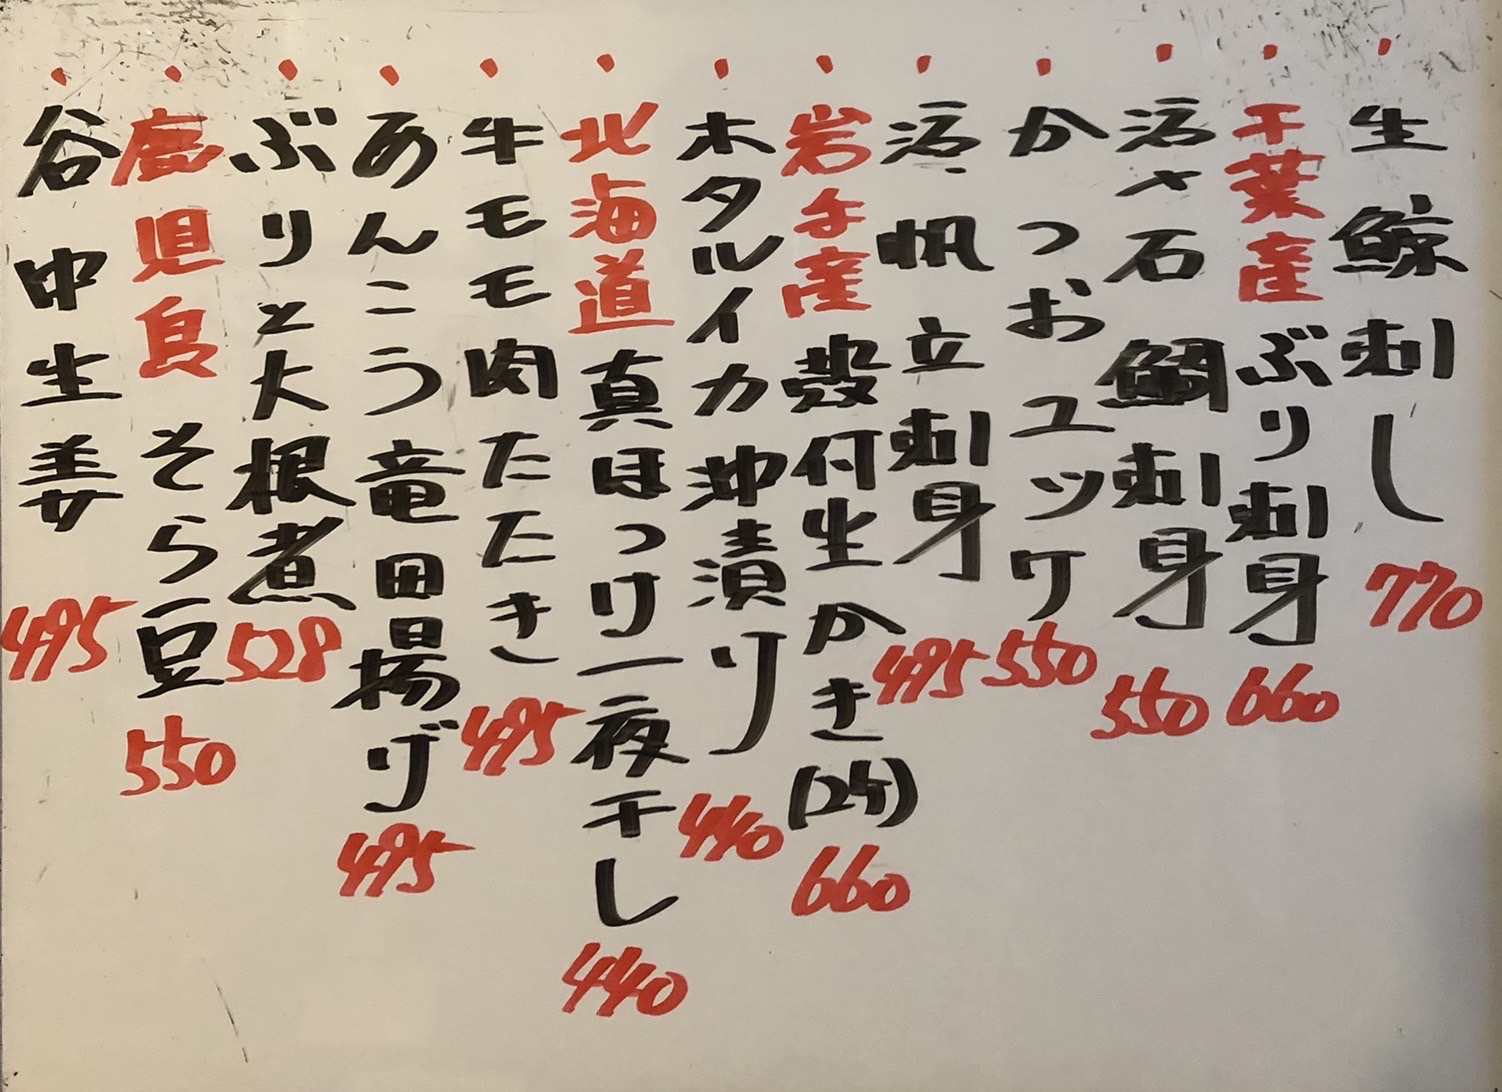 ・生鯨刺し 770
・千葉産ぶり刺身 660
・活〆石鯛刺身 550
・かつおユッケ 550
・活帆立刺身 495
・岩手産殻付生かき(2ケ) 660
・ホタルイカ沖漬り 440
・北海道真ほっけ一夜干し 440
・牛モモ肉たたき 495
・あんこう竜田揚げ 495
・ぶりと大根煮 528
・鹿児島そら豆 550
・谷中生姜 495